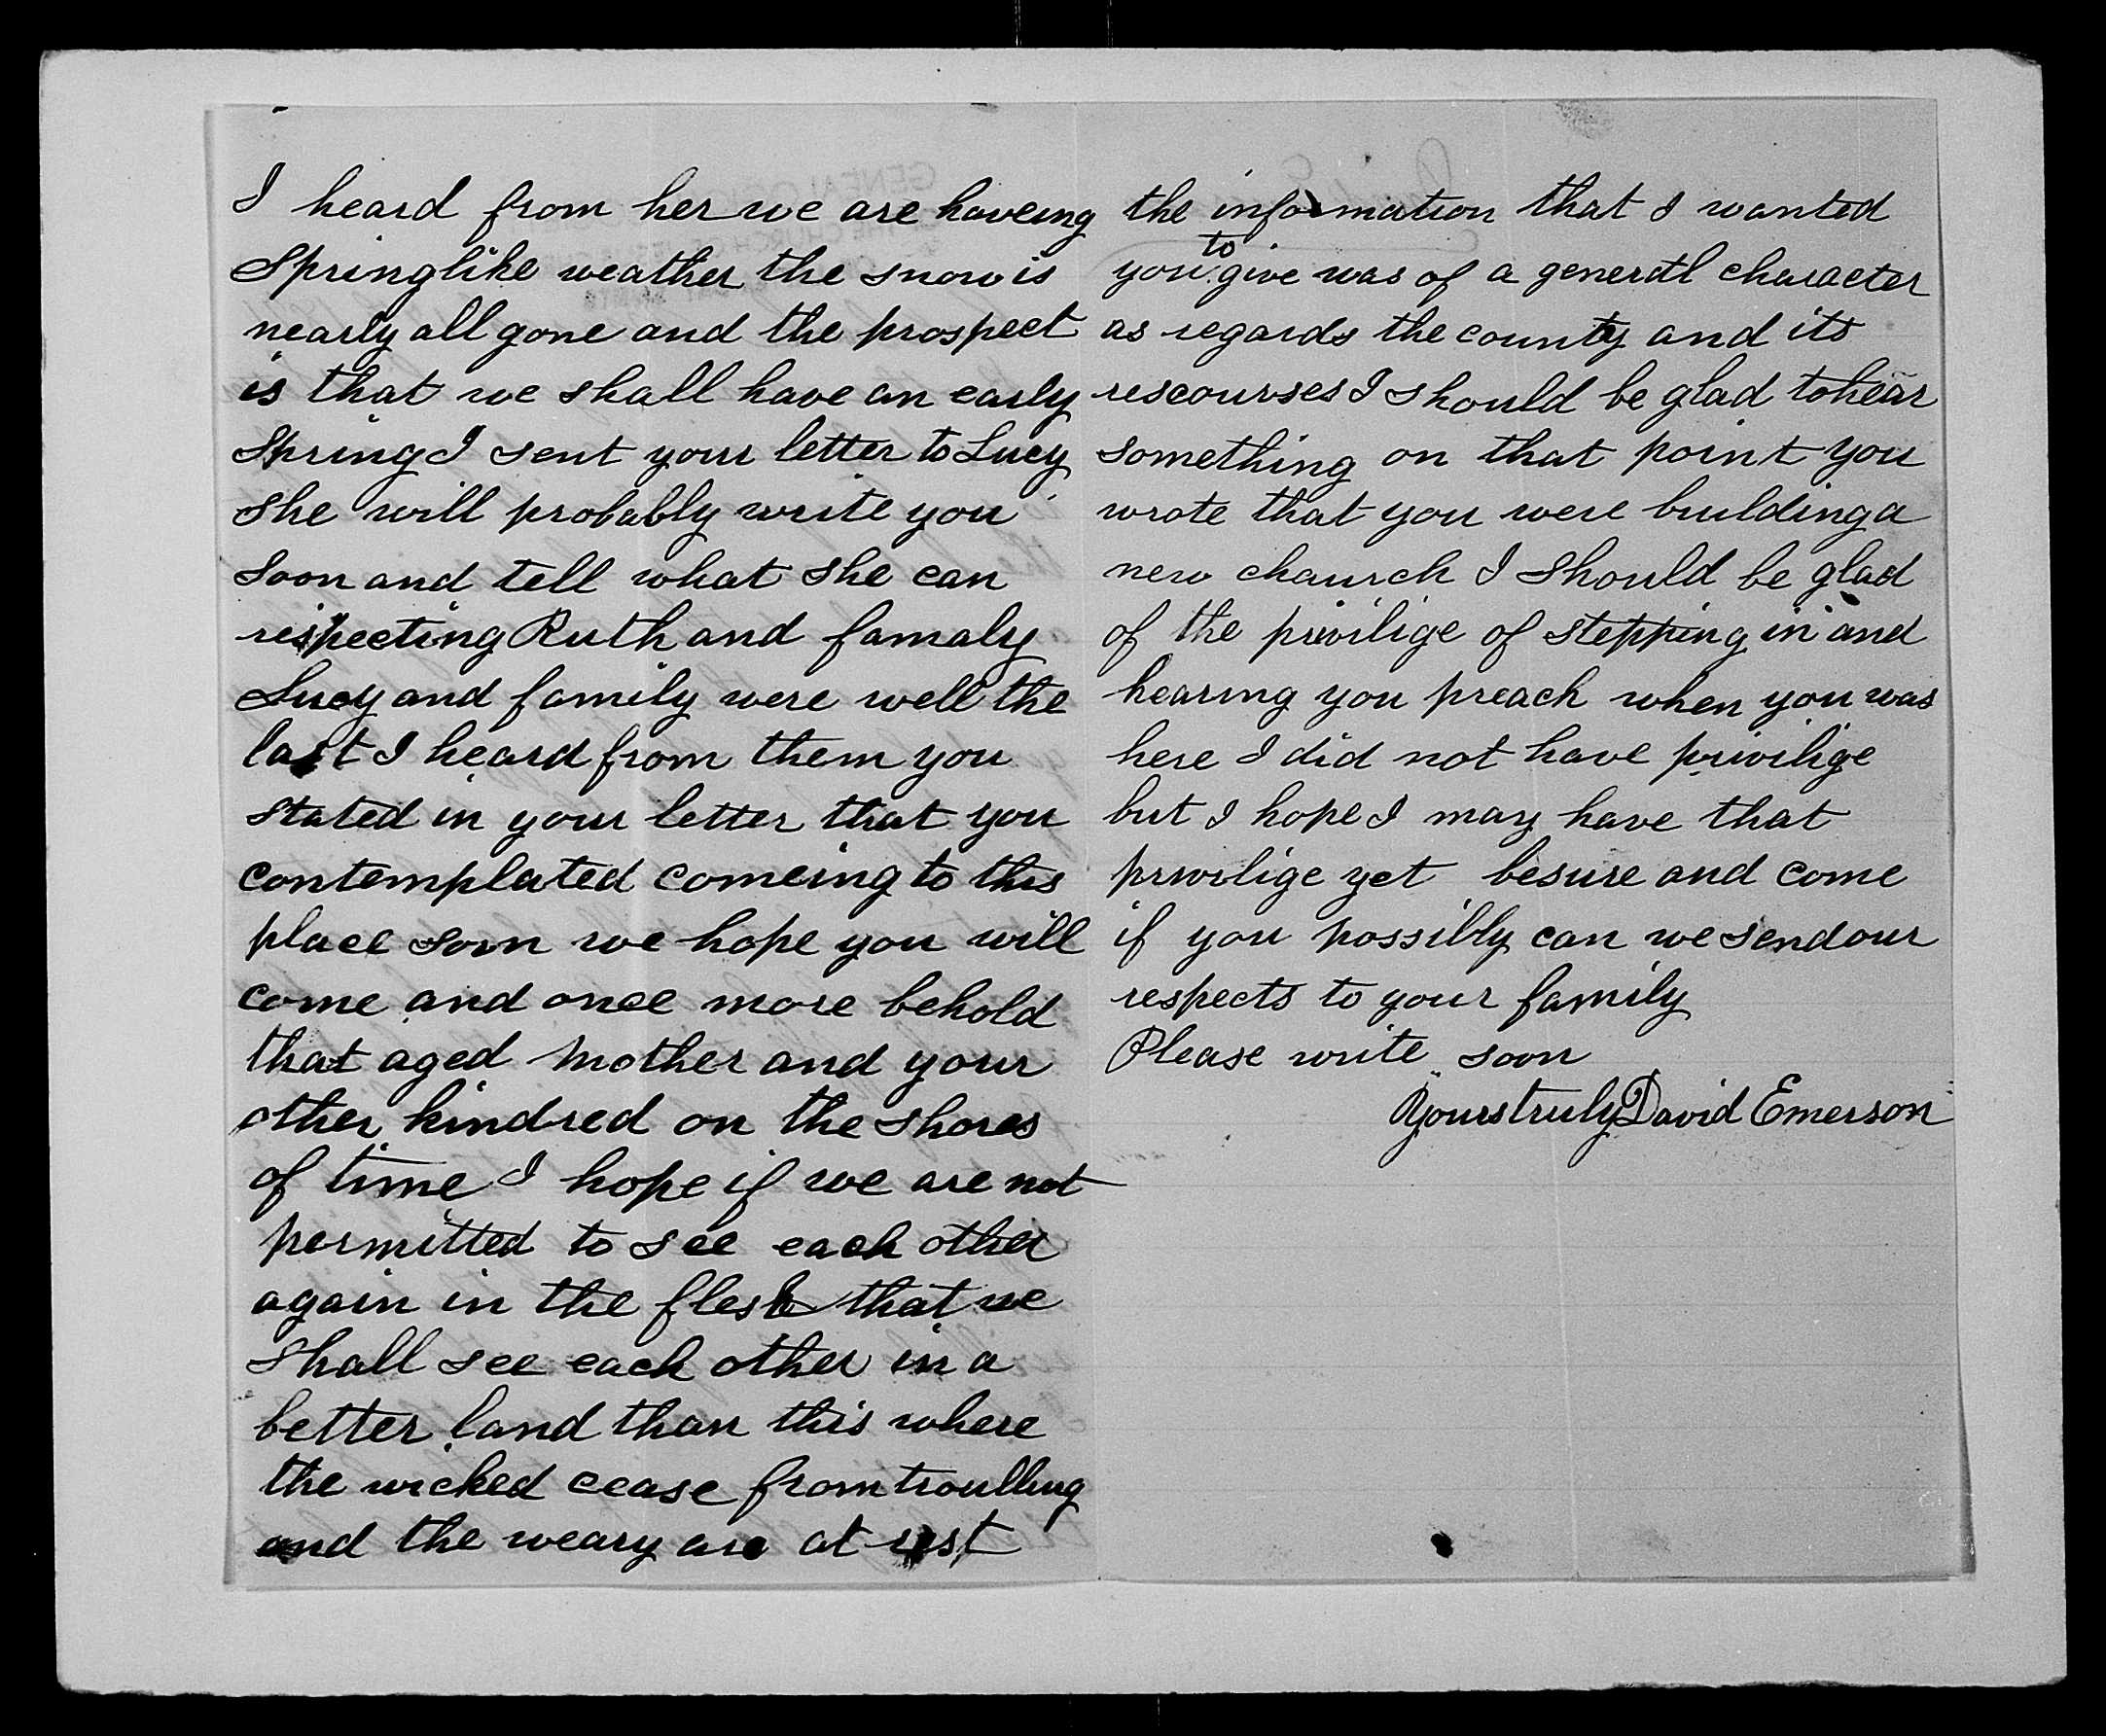 I heard from her we are haveing
Springlike weather the snow is
nearly all gone and the prospect
is that we shall have an early
Spring I sent your letter to Lucy
she will probably write you
soon and tell what she can
respecting Ruth and famaly
Lucy and family were well the
last I heard from them you
stated in your letter that you
contemplated comeing to this
place soon we hope you will
come and once more behold
that aged mother and your
other kindred on the shores
of time I hope if we are not
permitted to see each other
again in the flesh that we
shall see each other in a
better land than this where
the wicked cease from troulling
and the weary are at rest
the information that I wanted
you to give was of a generall character
as regards the county and its
rescourses I should be glad to hear
something on that point you
wrote that you were building a
new chaurch I should be glad
of the privilige of stepping in and
hearing you preach when you was
here I did not have privilige
but I hope I may have that
privilige yet besure and come
if you possibly can we send our
respects to your family
Please write soon
Yours truly David Emerson